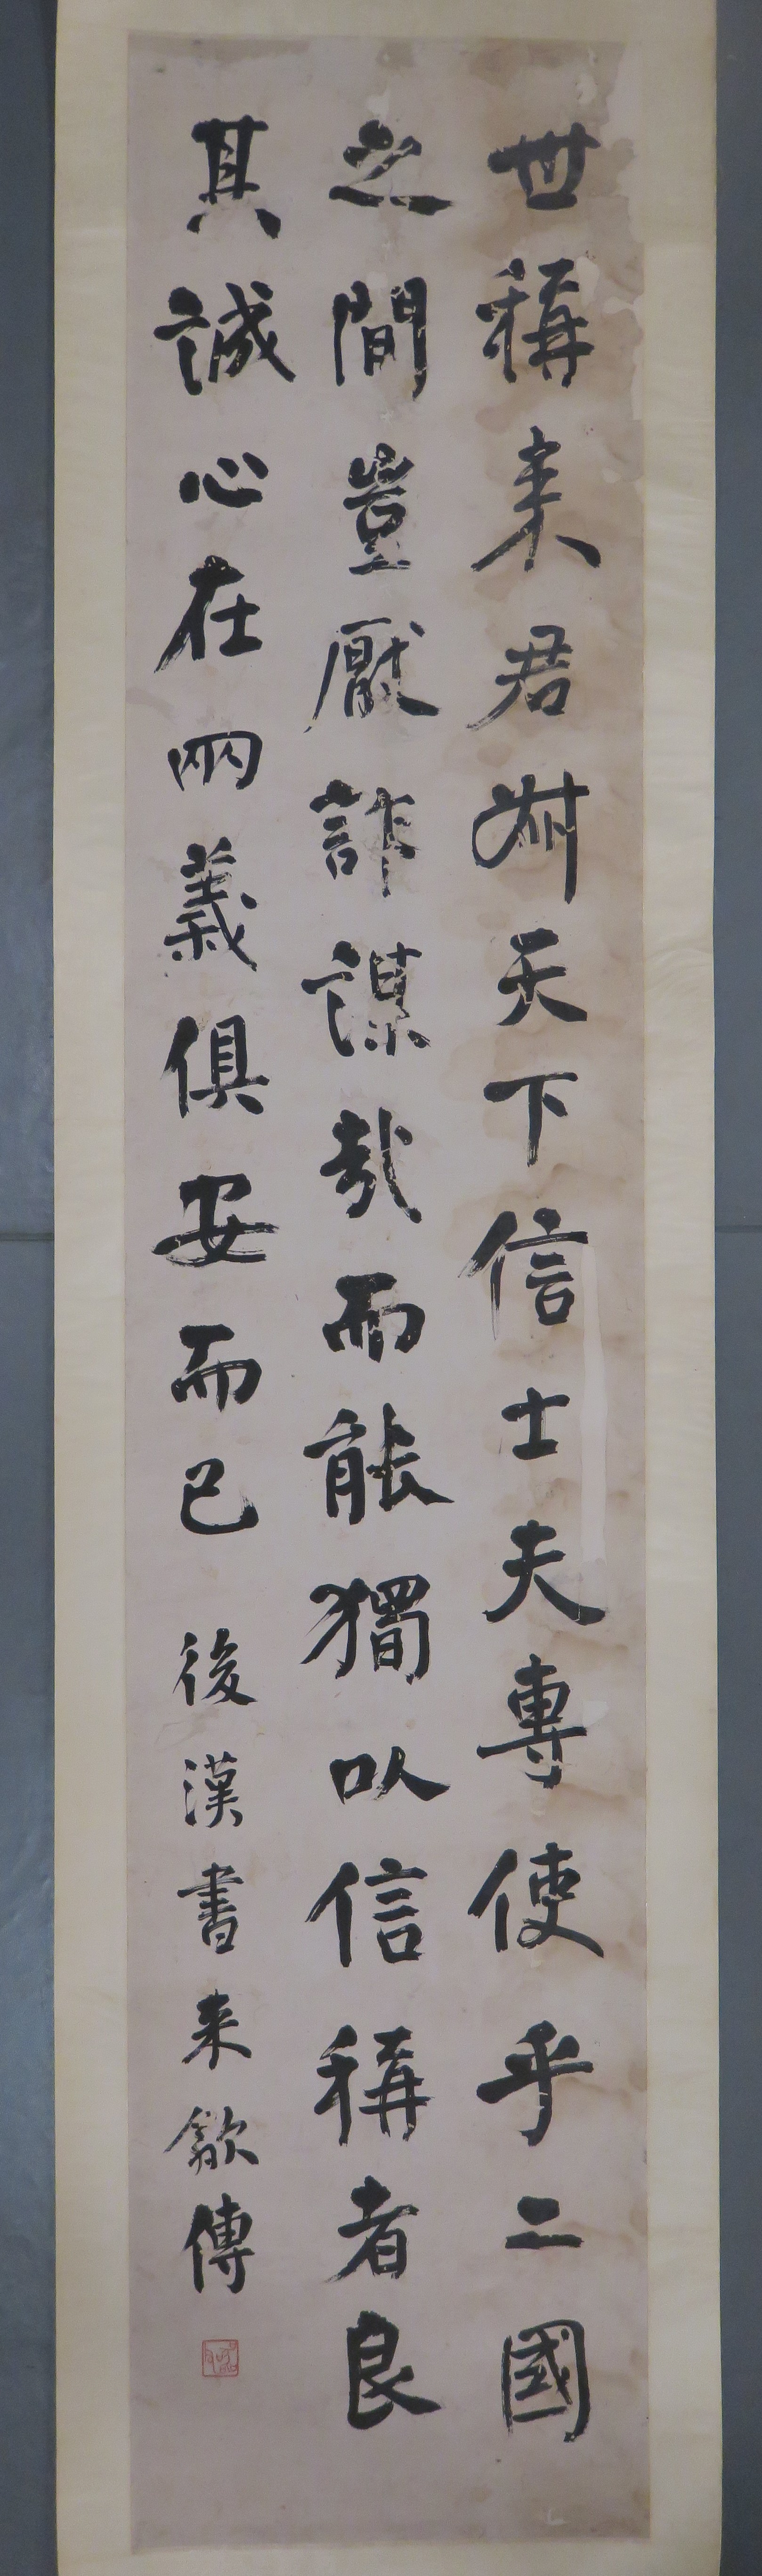 世稱来君叔天下信士夫專使乎二國
之間豈厭詐謀哉而能獨以信稱者良
其誠心在兩義俱安而已 後漢書来歙傳